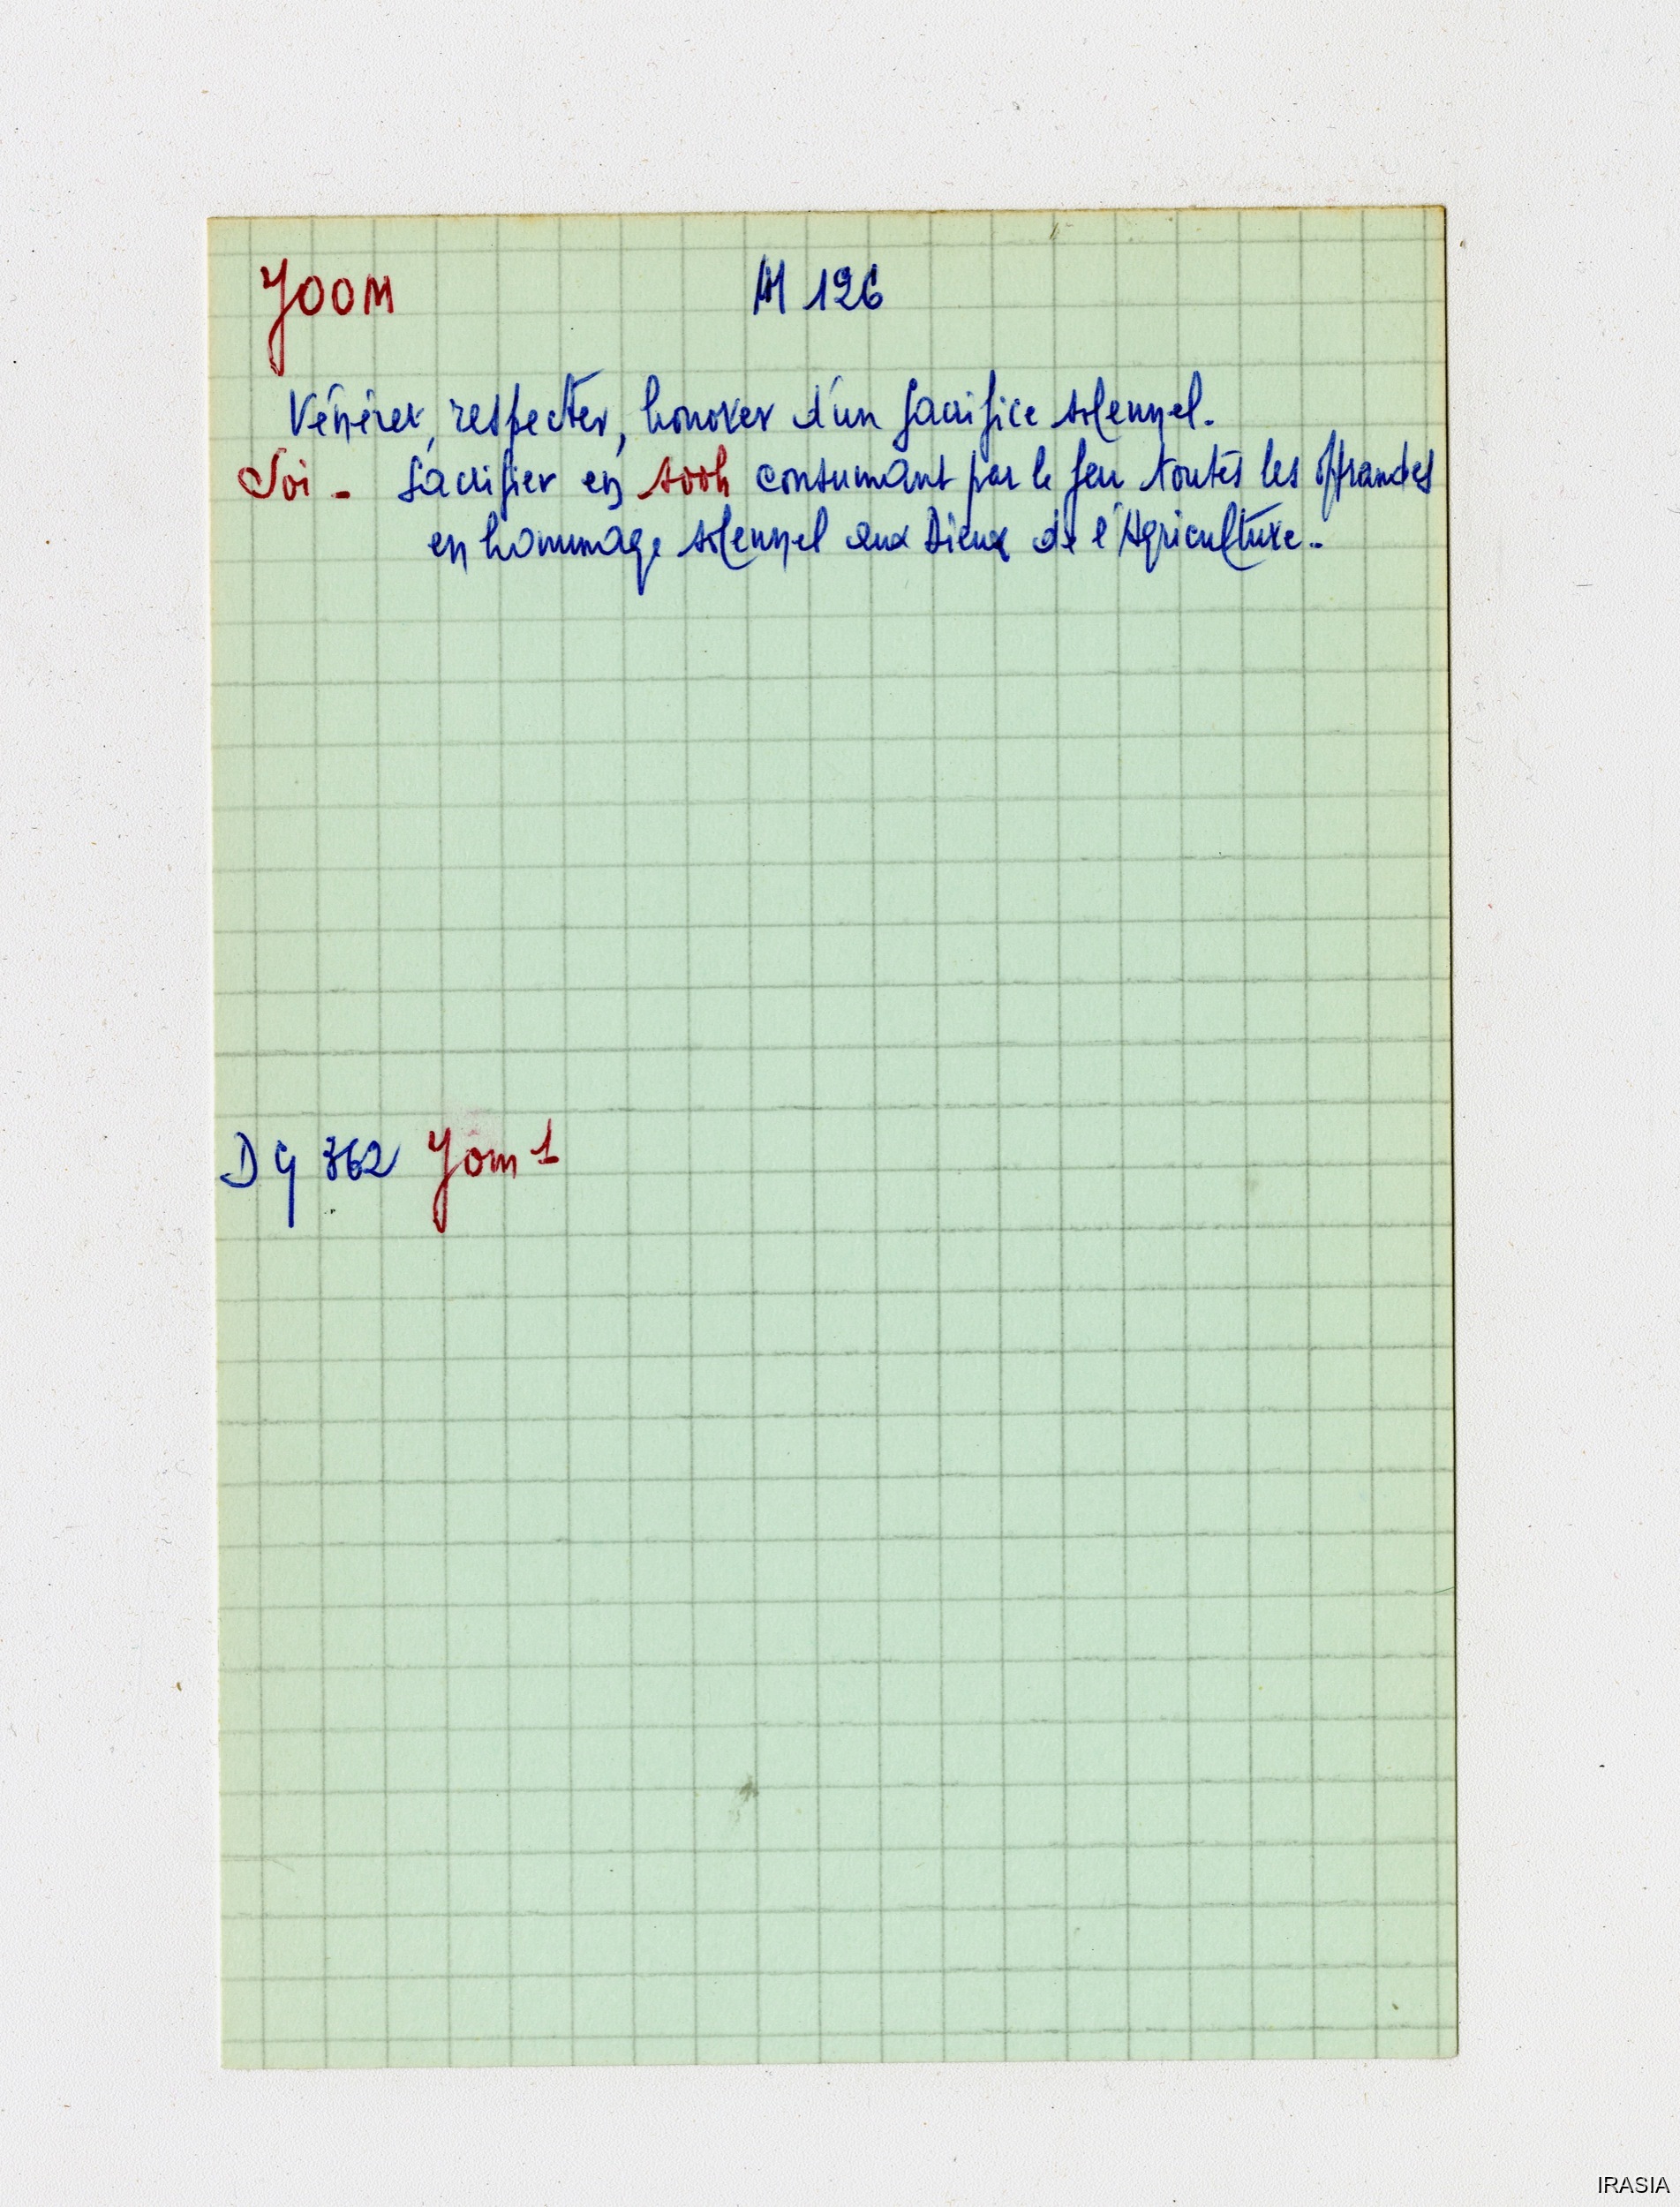 YOOM M 126
Vénérer, respecter, honorer d'un sacrifice solennel.
Soi - Sacrifier en sooh consumant par le feu toutes les offrandes
en hommage solennel aux Dieux de l'Agriculture.
D G 362 Yom 1
IRASIA